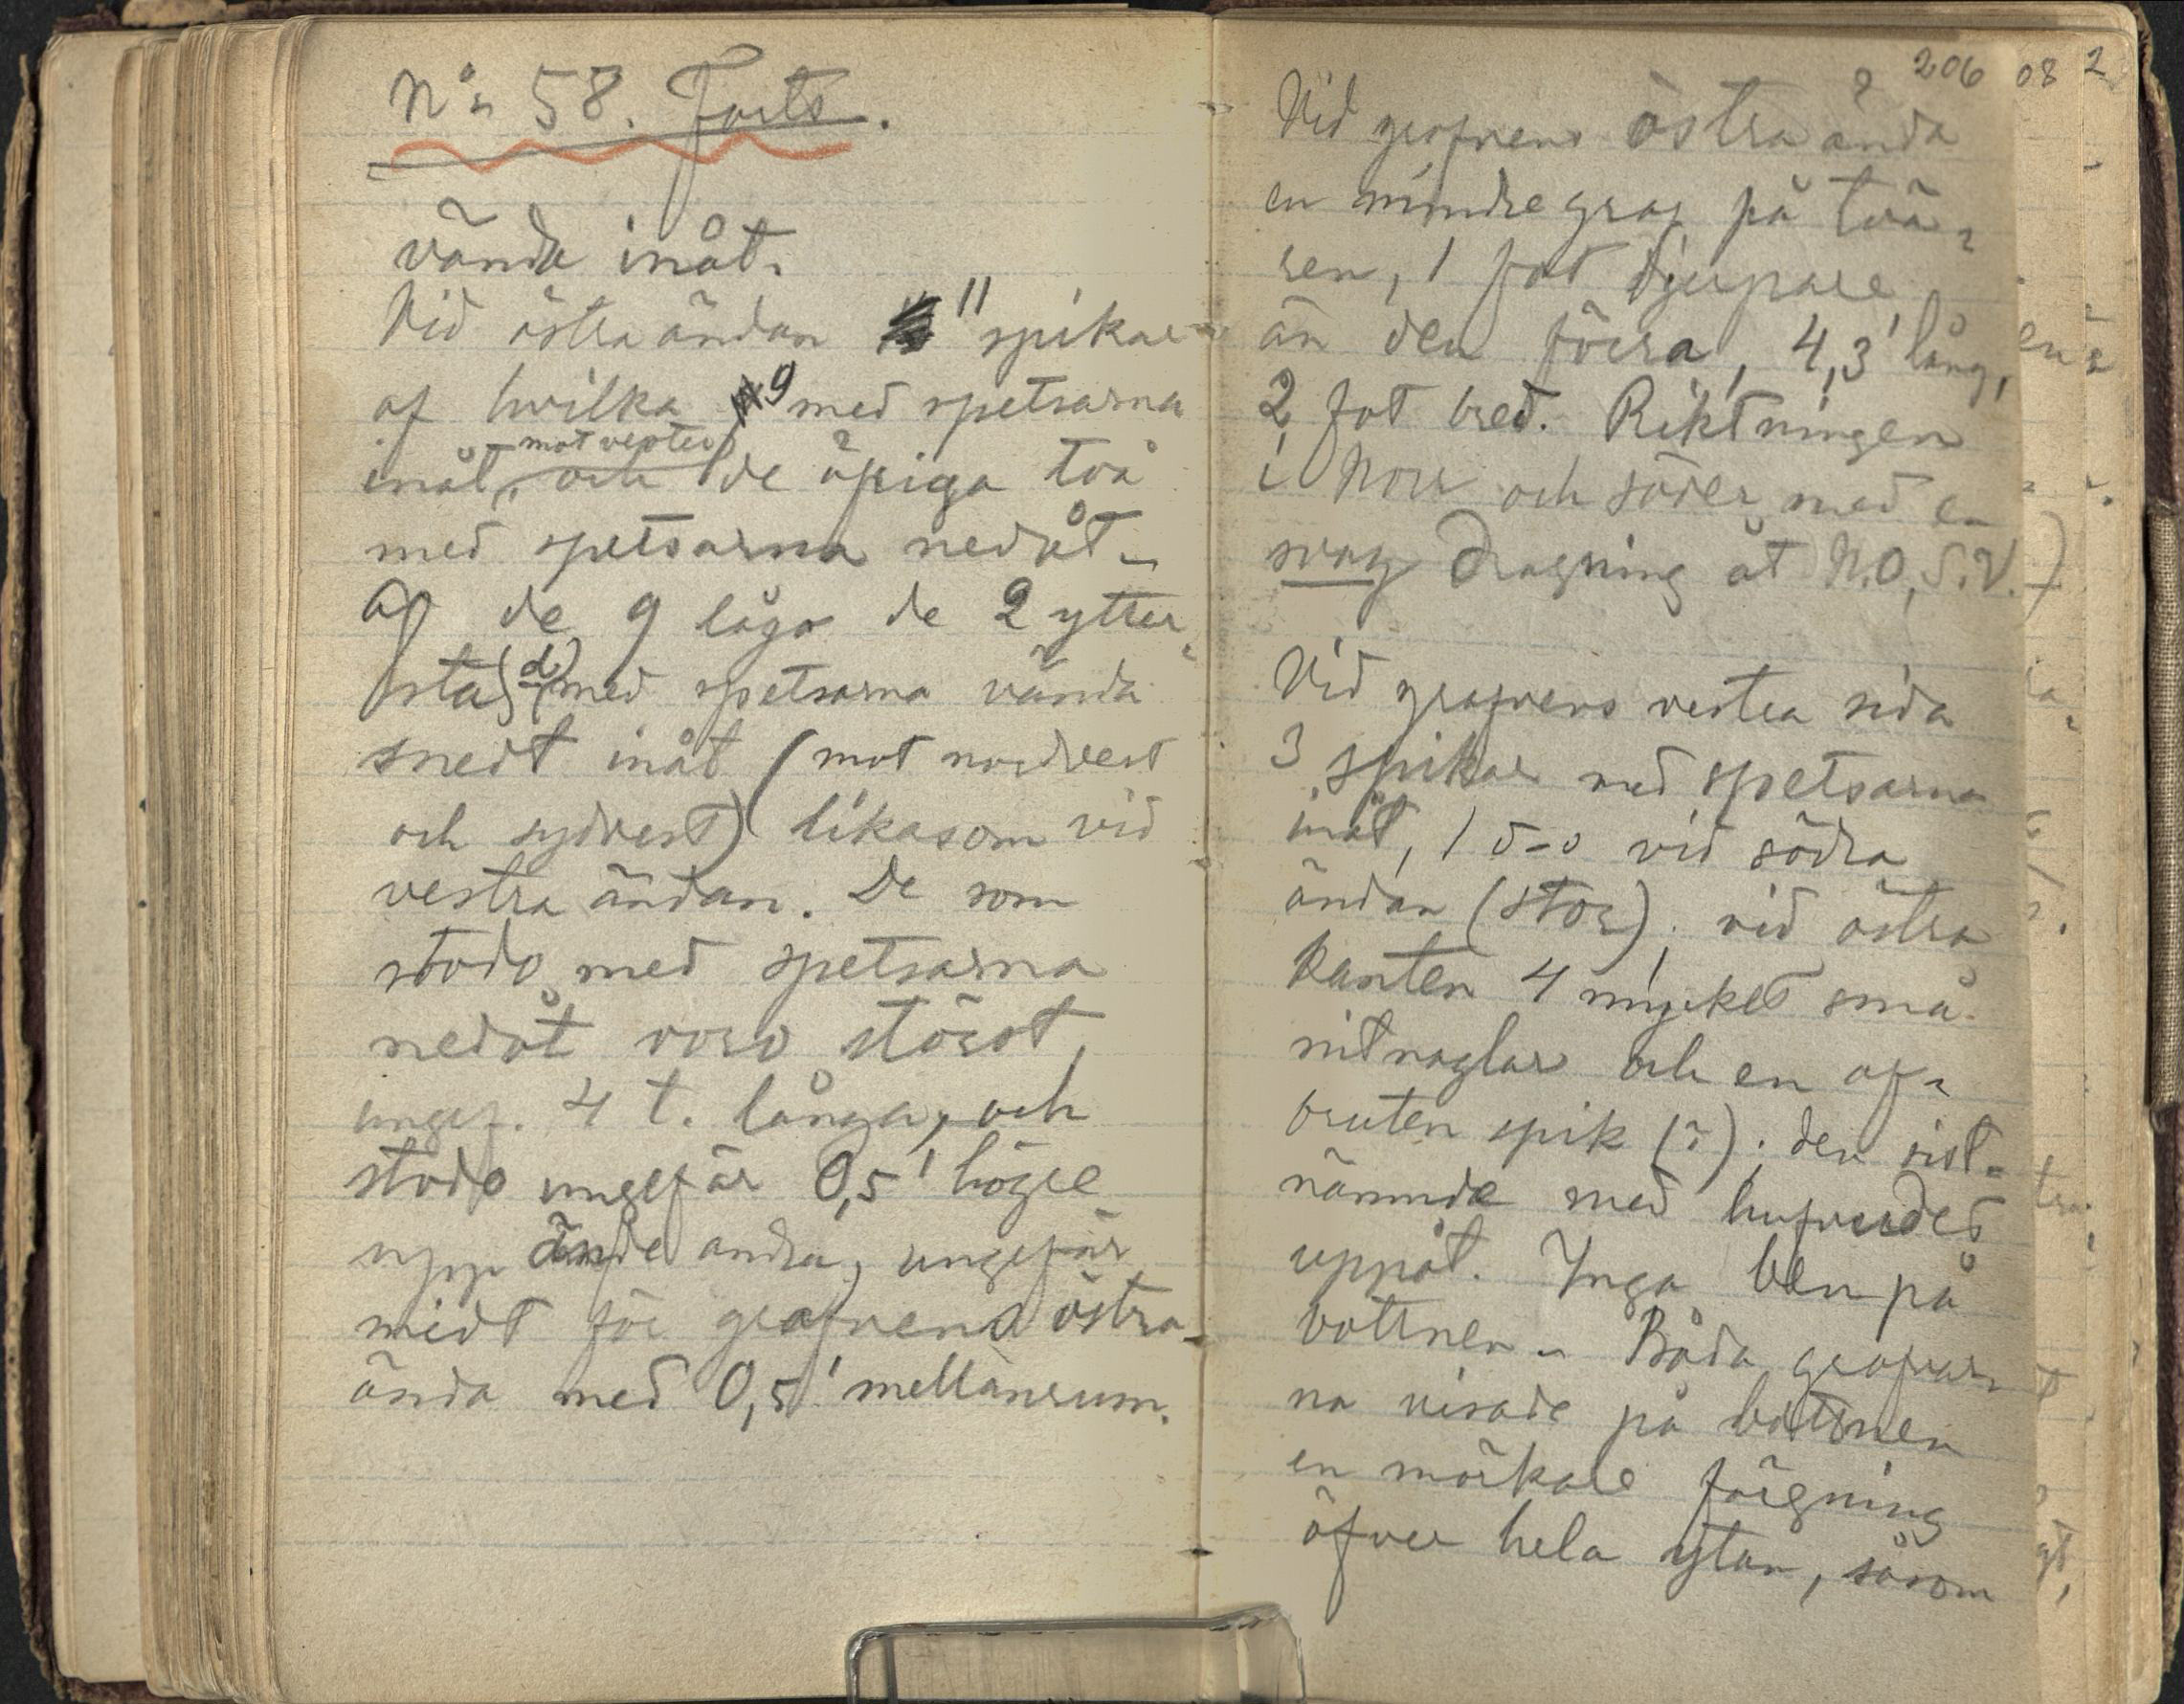 No 58. Forts.
vända inåt.
Vid östra ändan 11 spikar
af hvilka 9 med spetsarna
mot vester
inåt, och de öfriga två
med spetsarna nedåt.
Af de 9 lågo de 2 ytter-
sta (d) med spetsarna vända
snedt inåt (mot nordvest
och sydvest) likasom vid
vestra ändan. De som
stodo med spetsarna
nedåt voro störst,
ungef. 4 t. långa, och
stodo ungefär 0,5' högre
upp än de andra, ungefär
midt för grafvens östra
ända med 0,5' mellanrum.
206
Vid grafvens östra ända
en mindre graf på två-
ren, 1 fot djupare
än den förra, 4,3' lång,
2 fot bred. Riktningen
i Norr och söder med en
svag dragning åt N.O, S.V.
Vid grafvens vestra sida
3 spikar med spetsarna
inåt, 1 d-o vid södra
ändan (stor); vid östra
kanten 4 mycket små
nitnaglar och en af-
bruten spik (?); den sist-
nämnde med hufvudet
uppåt. Inga ben på
bottnen. Båda grafvar-
na visade på bottnen
en mörkare färgning
öfver hela ytan, såsom
08
2